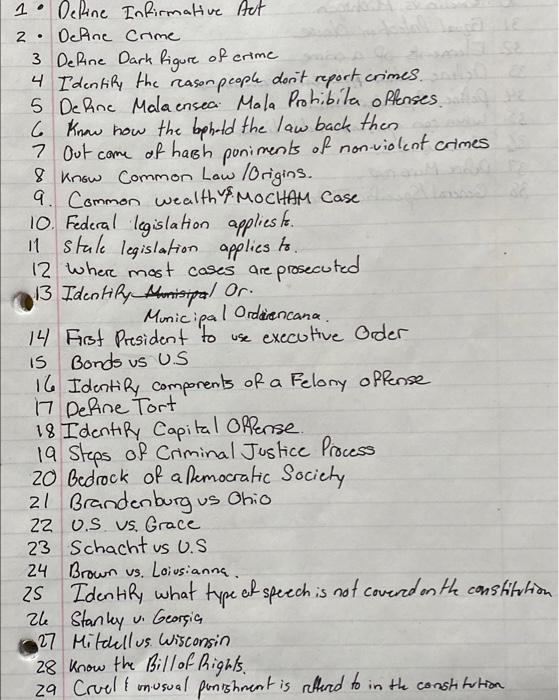 1 • Define Infirmative Act
2 • Define Crime
3 Define Dark figure of crime
4 Identify the reason people don't report crimes.
5 Define Mala ensea Mala Prohibila offenses.
6 Know how the upheld the law back then
7 Out come of harsh poniments of non-violent crimes
8 Know Common Law/Origins.
9. Common wealth vs MOCHAM Case
10. Federal legislation applies to.
11 State legislation applies to.
12 Where most cases are prosecuted
13 Identify Munisipal Or.
Municipal Ordiencana.
14 First President to use executive Order
15 Bonds vs U.S
16 Identify components of a Felony offense
17 Define Tort
18 Identify Capital Offense.
19 Steps of Criminal Justice Process
20 Bedrock of a Democratic Society
21 Brandenburg vs Ohio
22 U.S vs. Grace
23 Schacht vs U.S
24 Brown vs. Loiusianna.
25 Identify what type of speech is not covered on the constitution
26 Stanley v. Georgia
27 Mitchell vs. Wisconsin
28 Know the Bill of Rights.
29 Cruel & unusual punishment is refered to in the constitution